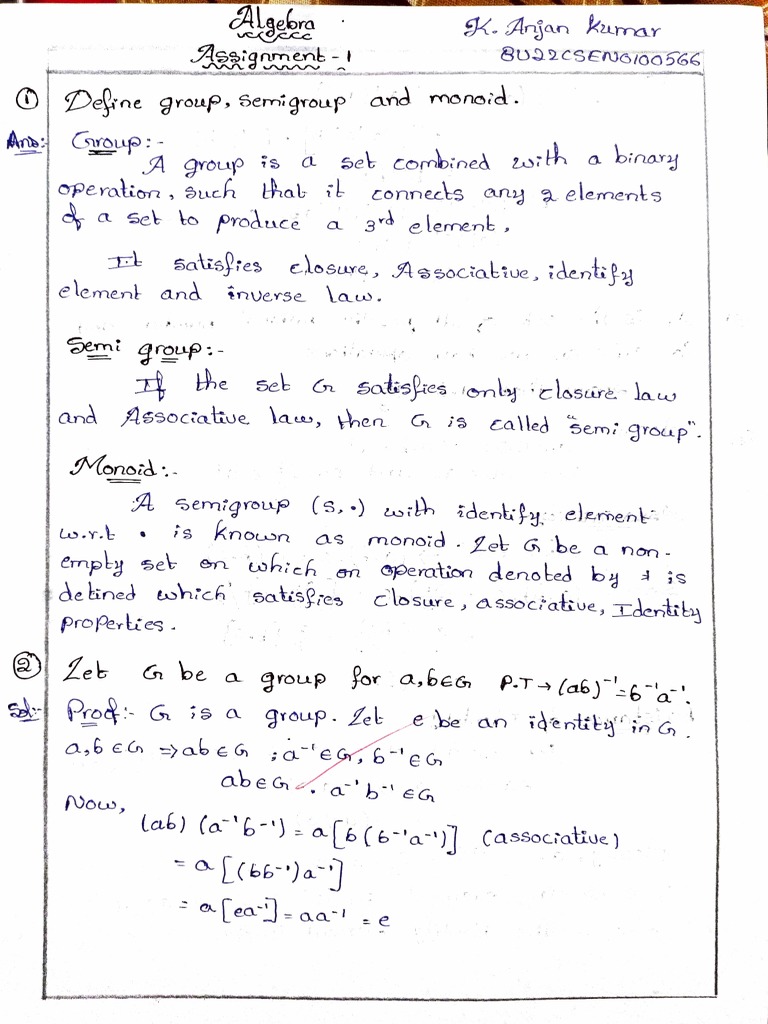 Algebra
Assignment - 1
K. Anjan Kumar
BU22CSEN0100566
① Define group, semigroup and monoid.
Ans:- Group:-
A group is a set combined with a binary
operation, such that it connects any 2 elements
of a set to produce a 3rd element.
It satisfies closure, Associative, identify
element and inverse law.
Semi group:-
If the set G satisfies only closure law
and Associative law, then G is called "semi group".
Monoid:-
A semigroup (S, •) with identify element
w.r.t • is known as monoid. Let G be a non-
empty set on which on operation denoted by * is
defined which satisfies closure, associative, Identity
properties.
② Let G be a group for a,b∈G P.T → (ab)⁻¹=b⁻¹a⁻¹.
Sol:- Proof:- G is a group. Let e be an identity in G.
a,b ∈G ⇒ab∈G ; a⁻¹∈G, b⁻¹∈G
ab∈G . a⁻¹b⁻¹ ∈G
Now,
(ab) (a⁻¹b⁻¹) = a[b(b⁻¹a⁻¹)] (associative)
= a[(bb⁻¹)a⁻¹]
= a[ea⁻¹] = aa⁻¹ = e